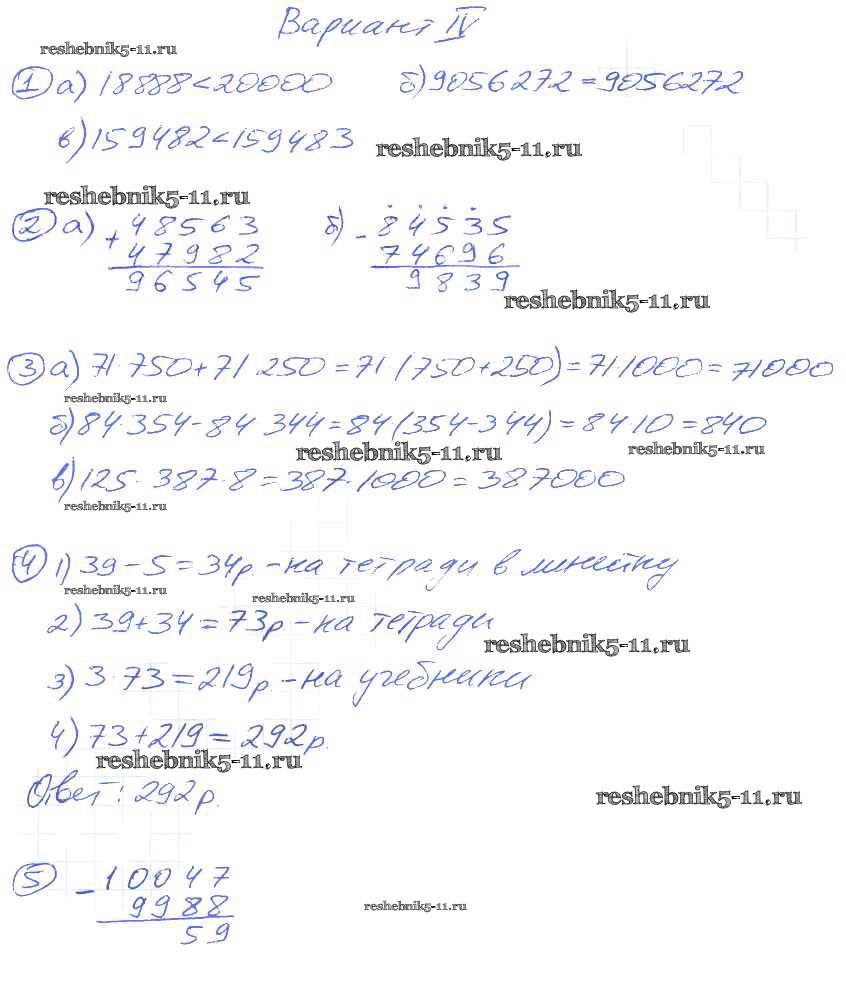 Вариант IV
reshebnik5-11.ru
1 а) 18888<20000 б) 9056272=9056272
в) 159482<159483
reshebnik5-11.ru
reshebnik5-11.ru
2 а) + 48563 б) - 84535
47982 74696
96545 9839
reshebnik5-11.ru
3 а) 71·750+71·250=71·(750+250)=71·1000=71000
reshebnik5-11.ru
б) 84·354-84·344=84(354-344)=84·10=840
reshebnik5-11.ru
reshebnik5-11.ru
в) 125·387·8=387·1000=387000
reshebnik5-11.ru
4 1) 39-5=34р.-на тетради в линейку
reshebnik5-11.ru
reshebnik5-11.ru
2) 39+34=73р-на тетради
reshebnik5-11.ru
3) 3·73=219р.-на учебники
4) 73+219=292р.
reshebnik5-11.ru
Ответ: 292р.
reshebnik5-11.ru
5 - 10047
9988
59
reshebnik5-11.ru